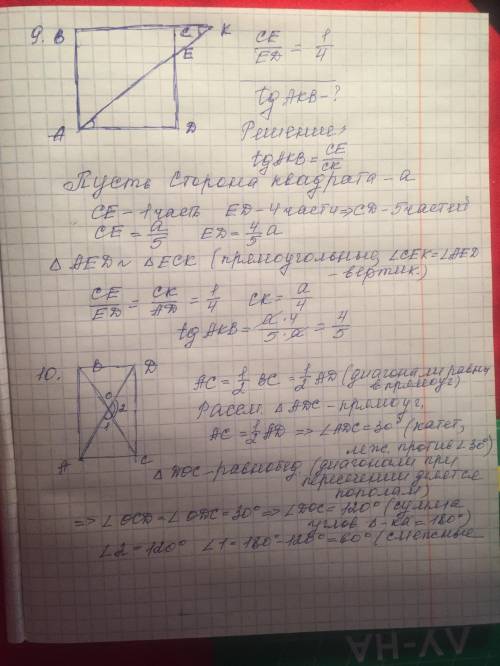 9. B C K
E
A D
CE/ED = 1/4
tg AKB - ?
Решение:
tg AKB = CE/CK
Пусть сторона квадрата - a
CE - 1 часть ED - 4 части => CD - 5 частей
CE = a/5 ED = 4/5 a
△ AED ~ △ ECK (прямоугольные, ∠CEK = ∠AED
- вертик.)
CE/ED = CK/AD = 1/4 CK = a/4
tg AKB = a·4/5·a = 4/5
10. B D
O
2
1
A C
AC = 1/2 BC = 1/2 AD (диагонали равны
в прямоуг)
Рассм. △ ADC - прямоуг.
AC = 1/2 AD => ∠ADC = 30° (катет,
леж. против ∠30°)
△ DOC - равнобед. (диагонали при
пересечении делятся
пополам)
=> ∠OCD = ∠ODC = 30° => ∠DOC = 120° (сумма
углов △-ка = 180°)
∠2 = 120° ∠1 = 180° - 120° = 60° (смежные
ЛУ-НА